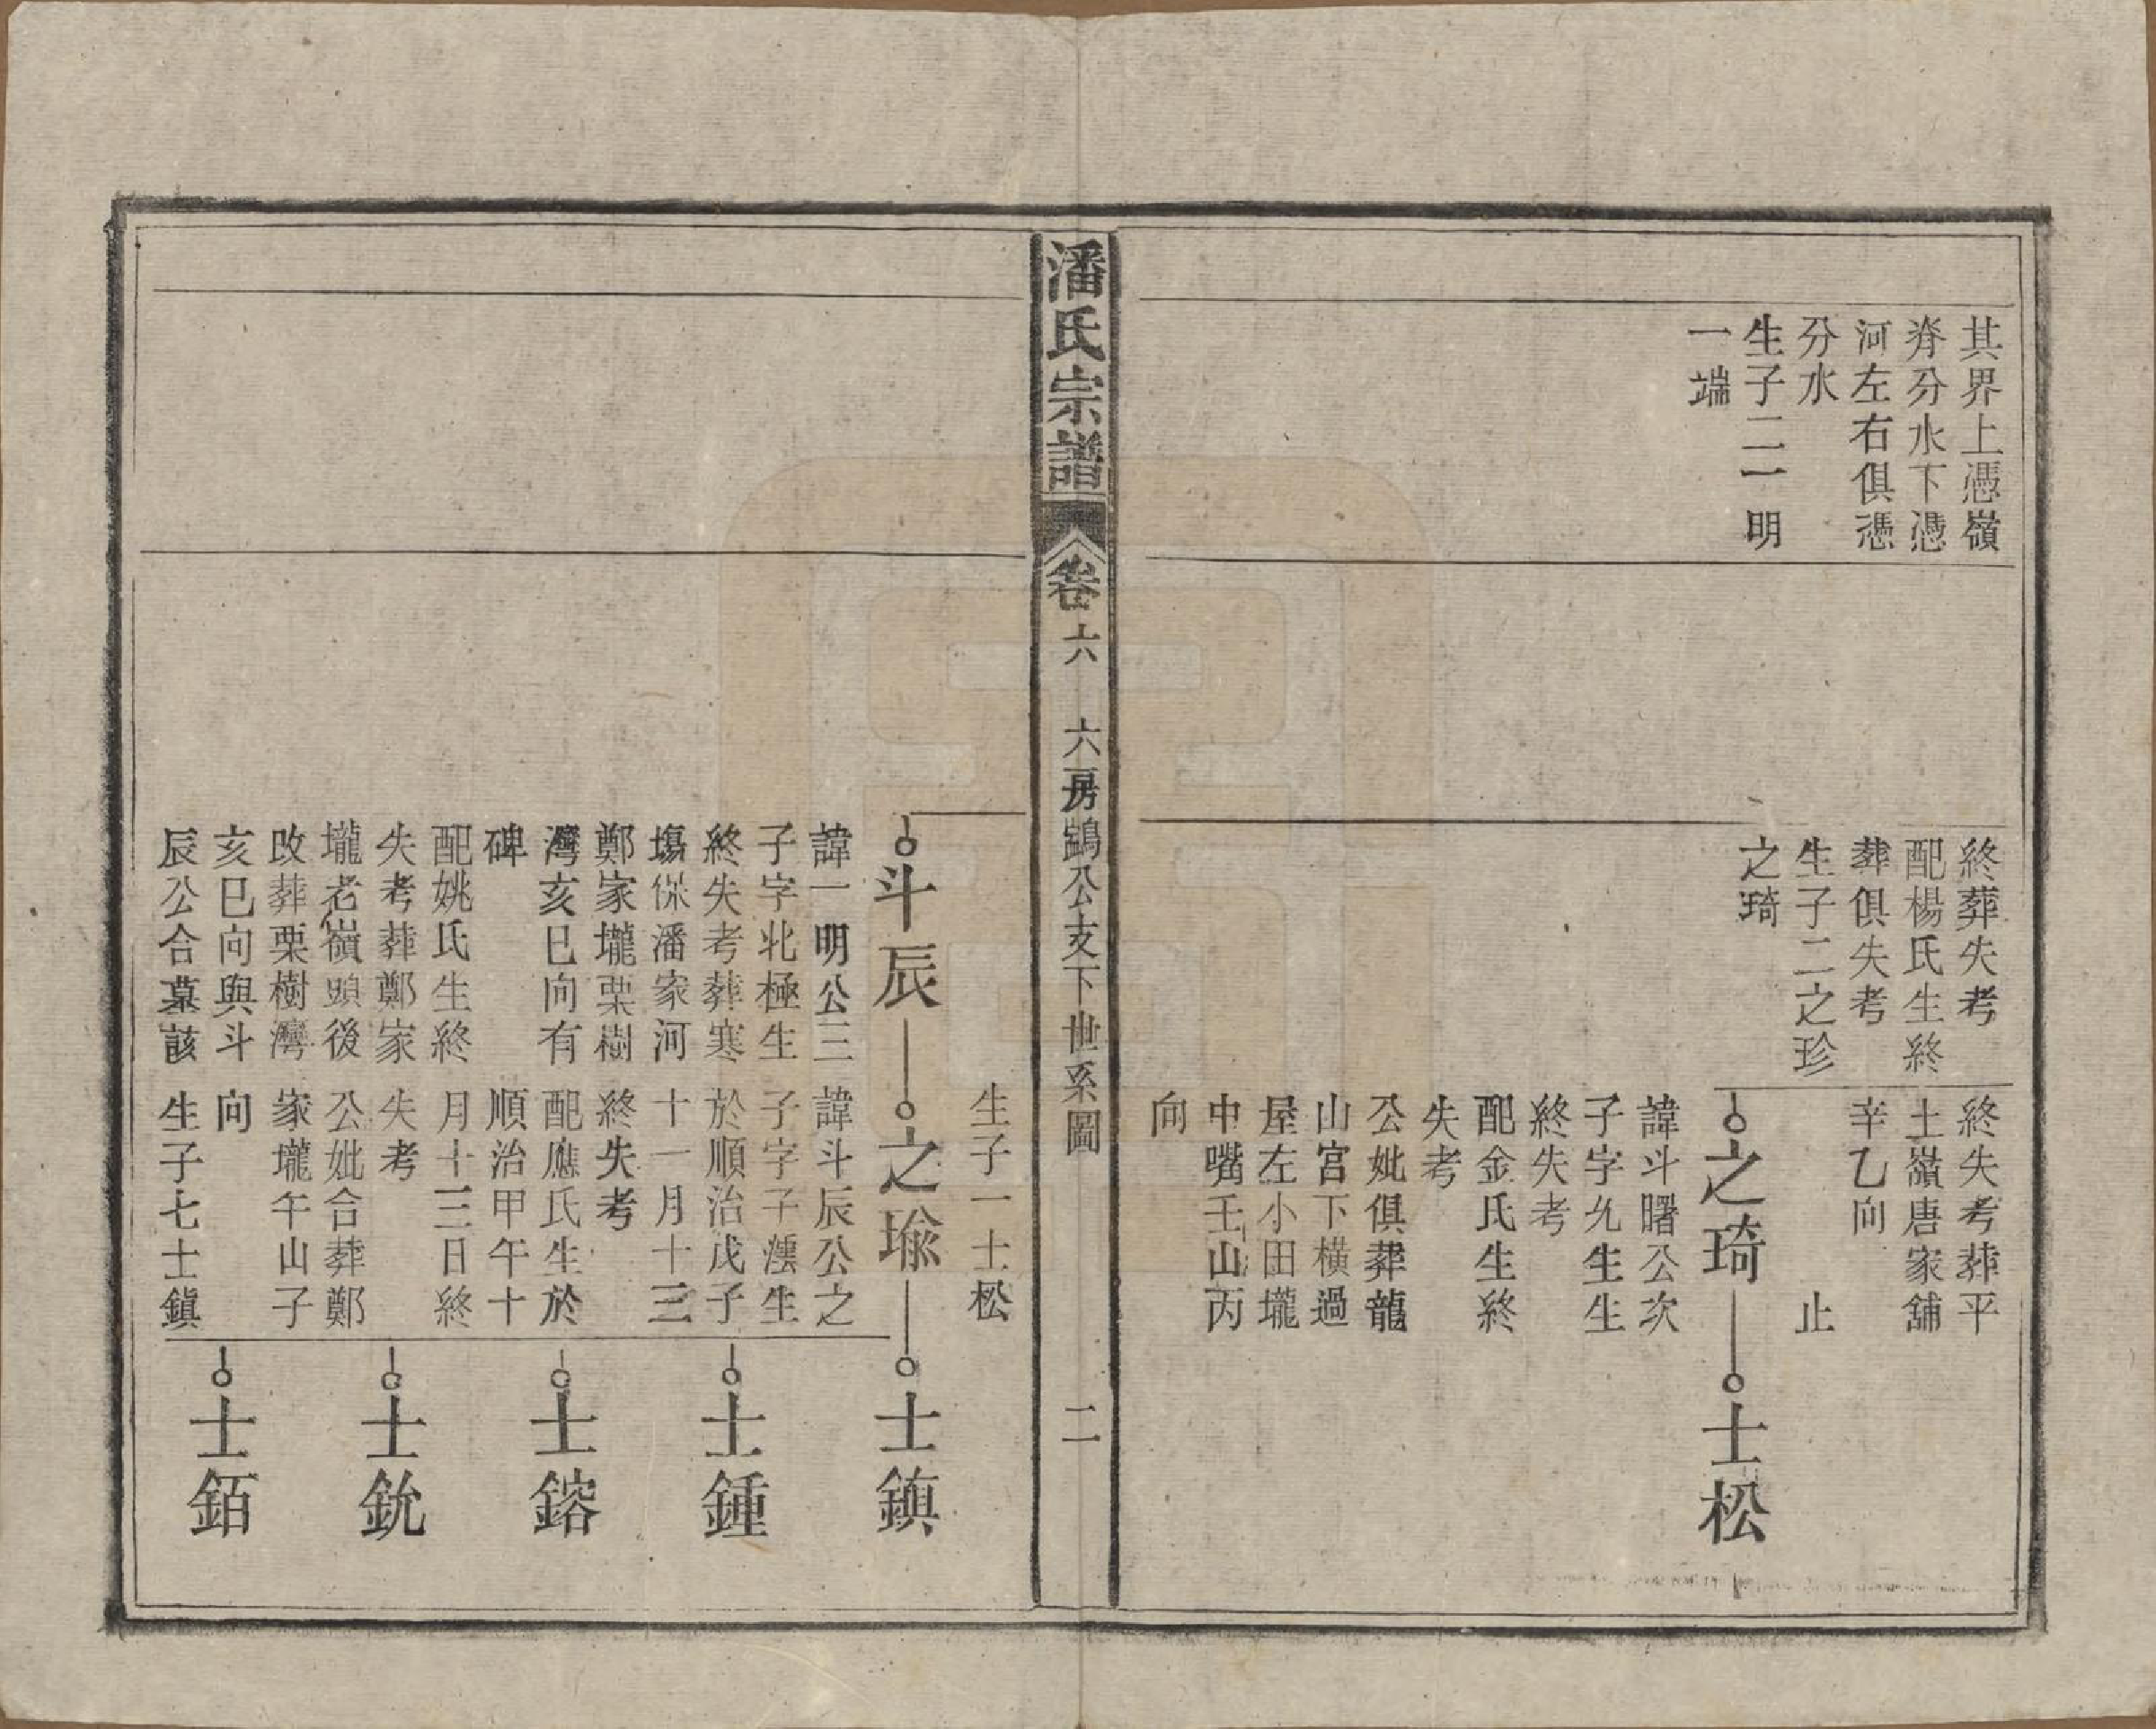 其界上憑嶺
脊分水下憑
河左右俱憑
分水
生子二一明
一端
終葬失考
配楊氏生終
葬俱失考
生子二之珍
之琦
終失考葬平
土嶺唐家舖
辛乙向
止
之琦
諱斗曙公次
子字允生生
終失考
配金氏生終
失考
公妣俱葬龍
山宮下橫過
屋左小田壠
中嘴壬山丙
向
士松
潘氏宗譜
卷六
六房鷂公支下世系圖
二
生子一士松
斗辰
諱一明公三
子字北極生
終失考葬寒
塲保潘家河
鄭家壠栗樹
灣亥巳向有
碑
配姚氏生終
失考葬鄭家
壠老嶺頭後
改葬栗樹灣
亥巳向與斗
辰公合墓該
之瑜
諱斗辰公之
子字子瀠生
於順治戊子
十一月十三
終失考
配應氏生於
順治甲午十
月十三日終
失考
公妣合葬鄭
家壠午山子
向
生子七士鎮
士鎮
士鍾
士鎔
士銃
士銆